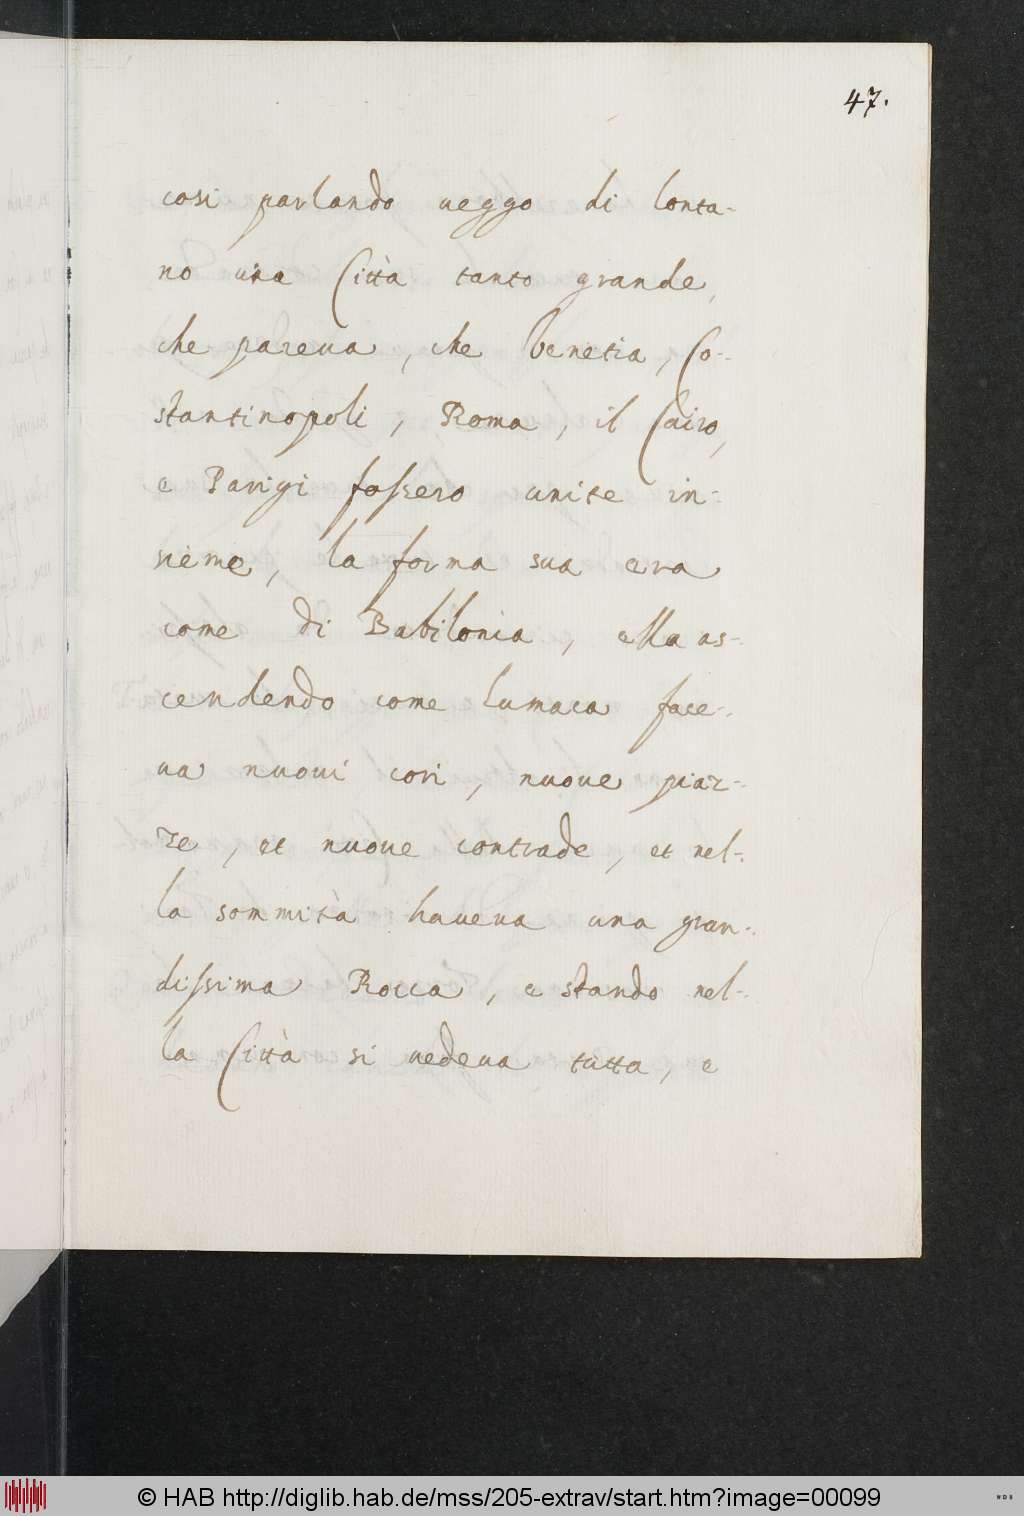 47.
cosi parlando ueggo di lonta-
no una Città tanto grande,
che pareua, che Venetia, Co-
stantinopoli, Roma, il Cairo,
e Parigi fossero unite in-
sieme, la forma sua era
come di Babilonia, ella as-
cendendo come lumaca face-
ua nuoui cori, nuoue piaz-
ze, et nuoue contrade, et nel-
la sommità haueua una gran-
dissima Rocca, e stando nel-
la Città si uedeua tutta, e
© HAB http://diglib.hab.de/mss/205-extrav/start.htm?image=00099